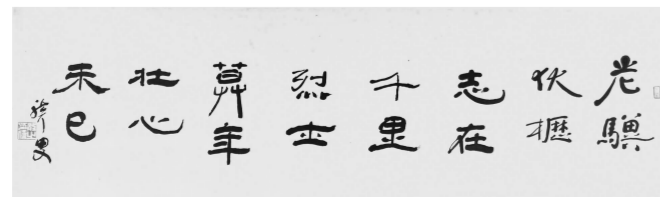 老驥
伏櫪
志在
千里
烈士
莫年
壯心
未已
叟